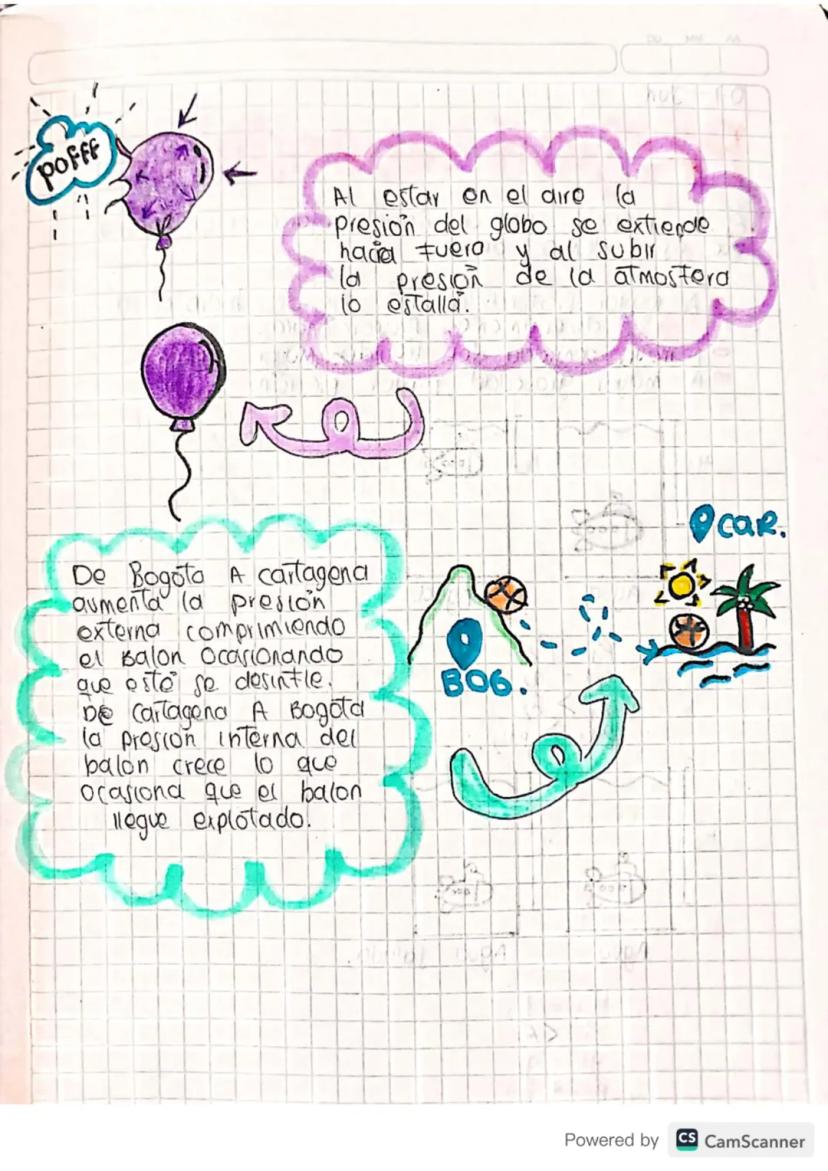 pofff
Al estar en el aire la
presión del globo se extiende
hacia fuera y al subir
la presión de la atmosfera
lo estalla.
CAR.
De Bogota A cartagena
aumenta la presión
externa comprimiendo
el balon ocasionando
que esté se desinfle.
De cartagena A Bogota
la presión interna del
balon crece lo que
ocasiona que el balon
llegue explotado.
BOG.
Agua salada.
Powered by CS CamScanner